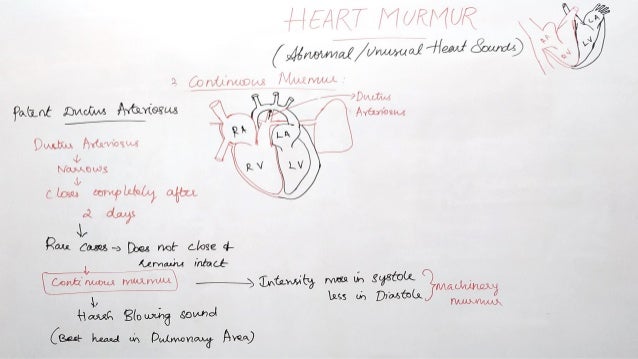 HEART MURMUR
(Abnormal/Unusual Heart Sounds)
RA
LA
RV
LV
2 Continuous Murmur:
Patent Ductus Arteriosus
Ductus
Arteriosus
RA
LA
RV
LV
Ductus Arteriosus
↓
Narrows
↓
Closes completely after
2 days
↓
Rare Cases → Does not close &
remains intact
Continuous murmur → Intensity more in systole } Machinery
less in Diastole murmur
↓
Harsh Blowing sound
(Best heard in Pulmonary Area)